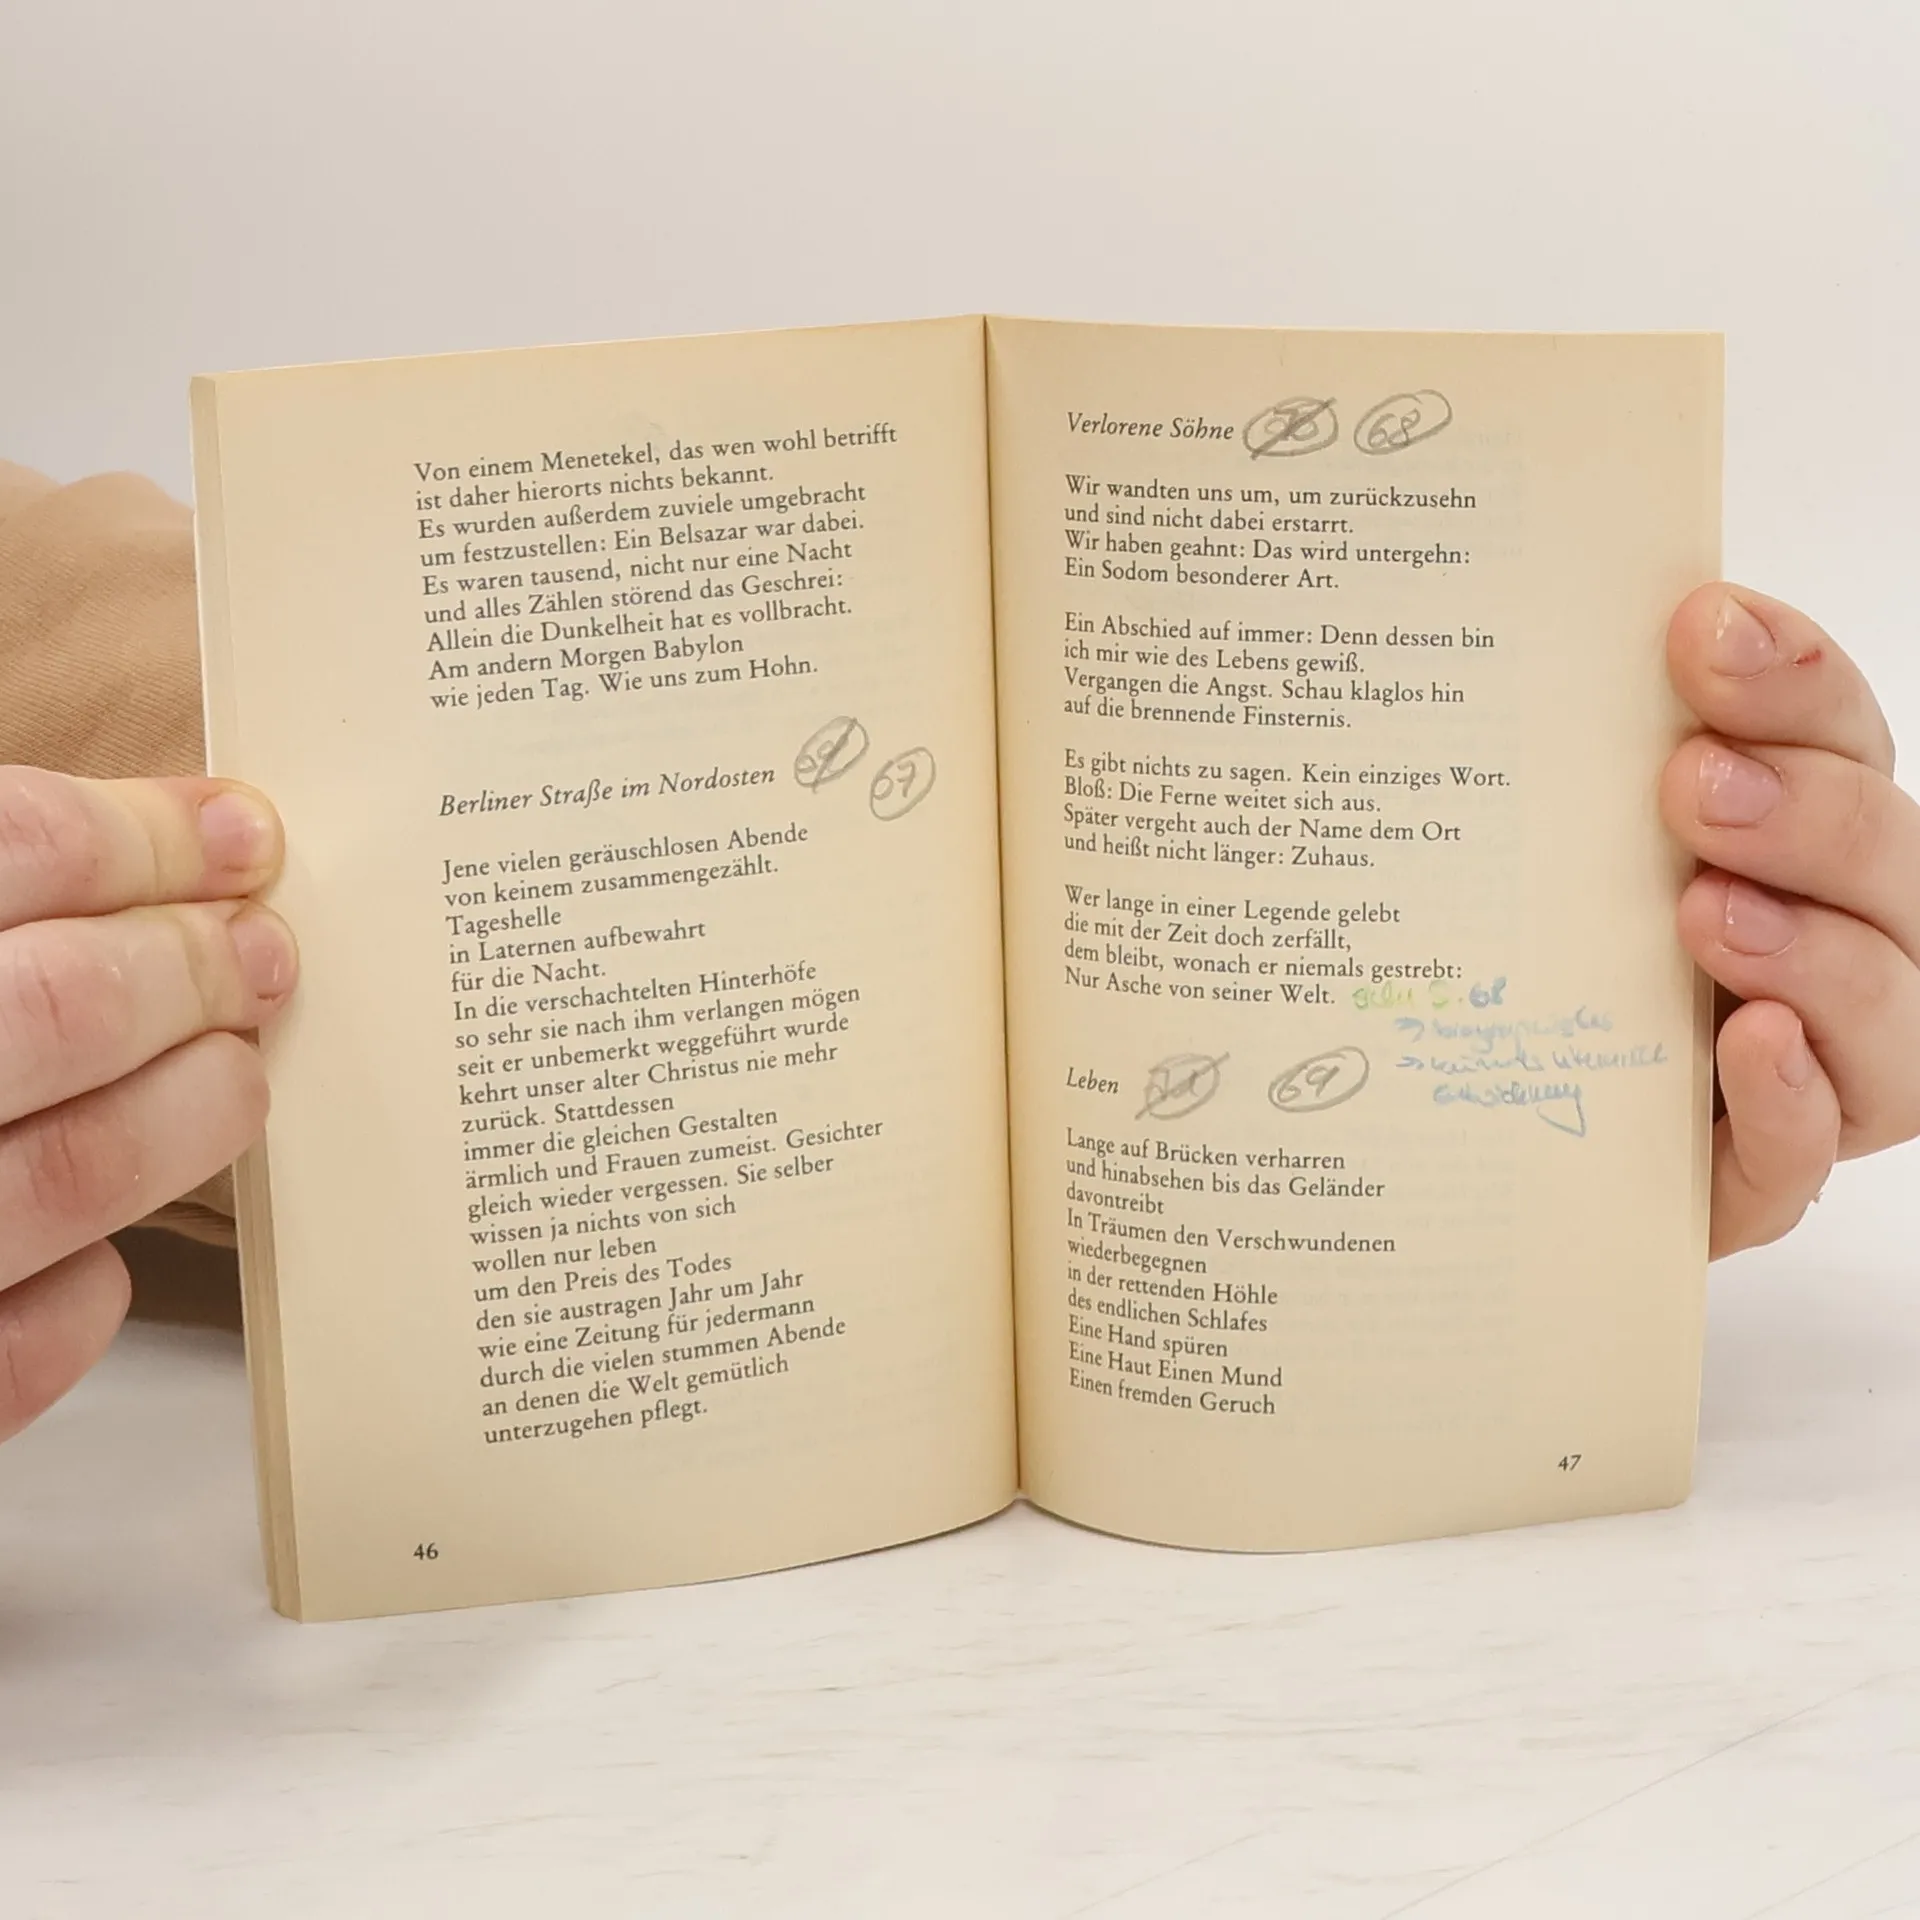 Von einem Menetekel, das wen wohl betrifft
ist daher hierorts nichts bekannt.
Es wurden außerdem zuviele umgebracht
um festzustellen: Ein Belsazar war dabei.
Es waren tausend, nicht nur eine Nacht
und alles Zählen störend das Geschrei:
Allein die Dunkelheit hat es vollbracht.
Am andern Morgen Babylon
wie jeden Tag. Wie uns zum Hohn.
Berliner Straße im Nordosten
67
Jene vielen geräuschlosen Abende
von keinem zusammengezählt.
Tageshelle
in Laternen aufbewahrt
für die Nacht.
In die verschachtelten Hinterhöfe
so sehr sie nach ihm verlangen mögen
seit er unbemerkt weggeführt wurde
kehrt unser alter Christus nie mehr
zurück. Stattdessen
immer die gleichen Gestalten
ärmlich und Frauen zumeist. Gesichter
gleich wieder vergessen. Sie selber
wissen ja nichts von sich
wollen nur leben
um den Preis des Todes
den sie austragen Jahr um Jahr
wie eine Zeitung für jedermann
durch die vielen stummen Abende
an denen die Welt gemütlich
unterzugehen pflegt.
46
Verlorene Söhne 68
Wir wandten uns um, um zurückzusehn
und sind nicht dabei erstarrt.
Wir haben geahnt: Das wird untergehn:
Ein Sodom besonderer Art.
Ein Abschied auf immer: Denn dessen bin
ich mir wie des Lebens gewiß.
Vergangen die Angst. Schau klaglos hin
auf die brennende Finsternis.
Es gibt nichts zu sagen. Kein einziges Wort.
Bloß: Die Ferne weitet sich aus.
Später vergeht auch der Name dem Ort
und heißt nicht länger: Zuhaus.
Wer lange in einer Legende gelebt
die mit der Zeit doch zerfällt,
dem bleibt, wonach er niemals gestrebt:
Nur Asche von seiner Welt. S. 68
Leben 69
Lange auf Brücken verharren
und hinabsehen bis das Geländer
davontreibt
In Träumen den Verschwundenen
wiederbegegnen
in der rettenden Höhle
des endlichen Schlafes
Eine Hand spüren
Eine Haut Einen Mund
Einen fremden Geruch
47